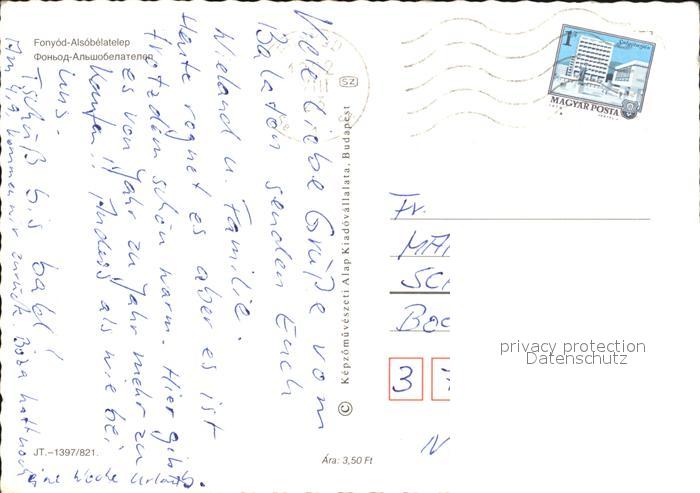 Fonyód-Alsóbélatelep
Фоньод-Альшобелателеп
Viele liebe Grüße vom
Balaton senden Euch
Wieland u. Familie.
Heute regnet es aber es ist
trotzdem schön warm. Hier gibts
es von Jahr zu Jahr mehr zu
kaufen!! Anders als wie bei
uns.
Tschüß bis bald!
Am 4.9. kommen wir zurück. hat noch
eine Woche Urlaub
JT.–1397/821.
Ára: 3,50 Ft
© Képzőművészeti Alap Kiadóvállalata, Budapest
SZ
1 Ft
MAGYAR POSTA
Fr.
MA
SC
BOC
3
N
privacy protection
Datenschutz